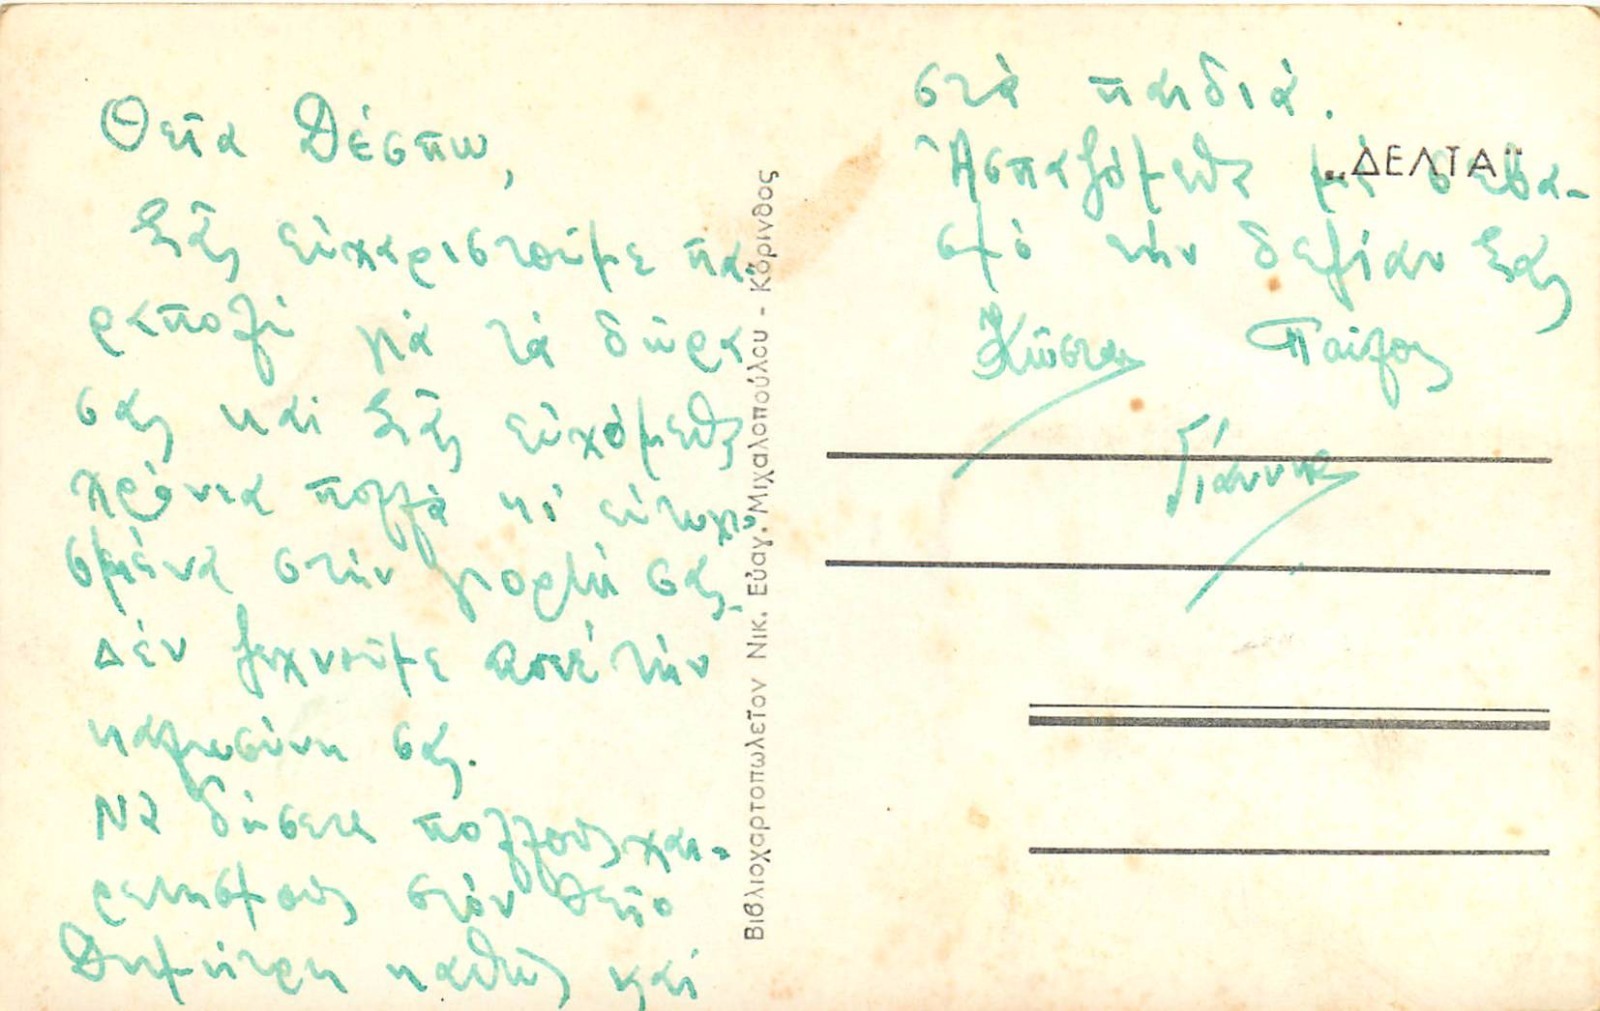 Θεῖα Δέσπω,
Σᾶς εὐχαριστοῦμε πα-
ραπολὺ γιὰ τὰ δῶρα
σας καὶ Σᾶς εὐχόμεθα
χρόνια πολλὰ κι' εὐτυχι-
σμένα στὴν γιορτή σας.
Δὲν ξεχνοῦμε ποτὲ τὴν
καλωσύνη σας.
Νὰ δώσετε πολλοὺς χαι-
ρετισμοὺς στὸν θεῖο
Δημήτρη καθὼς καὶ
στὰ παιδιά.
Ἀσπαζόμεθα μὲ σεβα-
σμὸ τὴν δεξιάν Σας
Κώστας Παῦλος
Γιάννης
„ΔΕΛΤΑ"
Βιβλιοχαρτοπωλεῖον Νικ. Εὐαγ. Μιχαλοπούλου - Κόρινθος